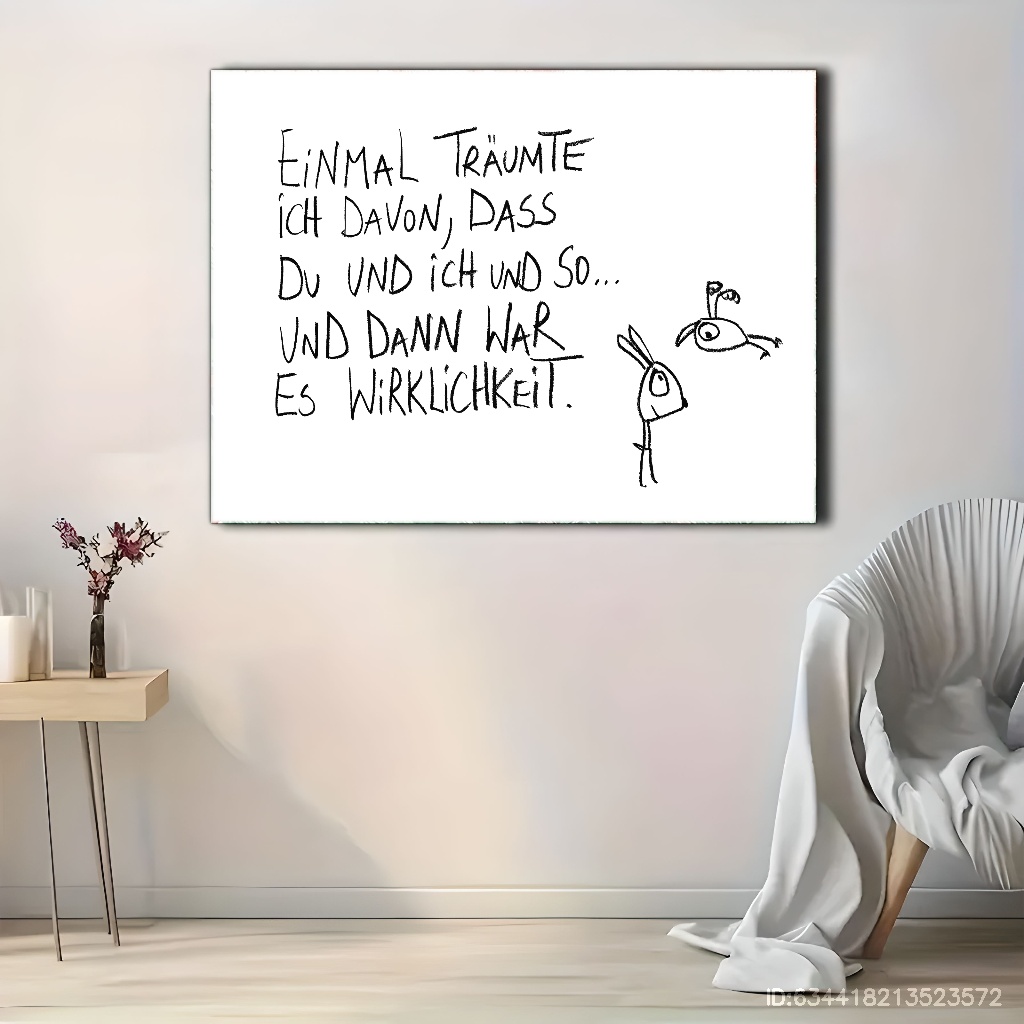 EINMAL TRÄUMTE
ICH DAVON, DASS
DU UND ICH UND SO...
UND DANN WAR
ES WIRKLICHKEIT.
ID:634418213523572